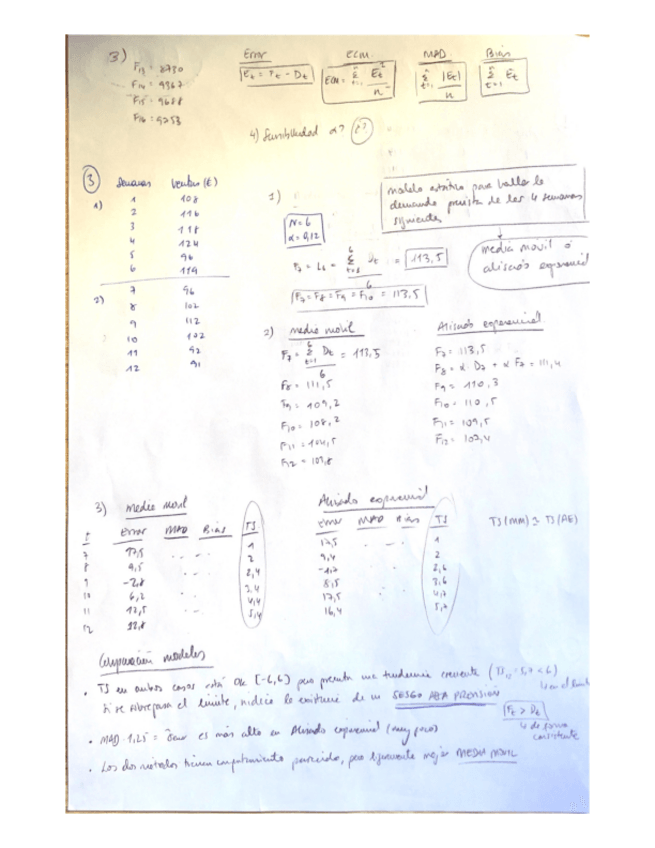 3)
F13 = 8730
F14 = 9362
F15 = 9688
F16 = 9253
Error
Et = Ft - Dt
ECM
ECM = Σ t=1 Et² / n
MAD
Σ t=1 |Et| / n
Bias
Σ t=1 Et
4) Sensibilidad α? ¿?
3
Semanas Ventas (£)
1) 1 108
2 116
3 118
4 124
5 96
6 119
2) 7 96
8 102
9 112
10 102
11 92
12 91
1)
N = 6
α = 0,12
F7 = L6 = Σ t=1 6 Dt / 6 = 113,5
F7 = F8 = F9 = F10 = 113,5
modelo estático para hallar la
demanda prevista de las 4 semanas
siguientes
media móvil o
alisado exponencial
2) media móvil
F7 = Σ t=1 6 Dt / 6 = 113,5
F8 = 111,5
F9 = 109,2
F10 = 108,2
F11 = 104,5
F12 = 103,8
Alisado exponencial
F7 = 113,5
F8 = α · D7 + α F7 = 111,4
F9 = 110,3
F10 = 110,5
F11 = 109,5
F12 = 107,4
3) media móvil
t Error MAD Bias TS
7 17,5 1
8 9,5 2
9 -2,8 2,4
10 6,2 3,4
11 12,5 4,4
12 12,8 5,4
Alisado exponencial
Error MAD Bias TS
17,5 1
9,4 2
-1,7 2,6
8,5 3,6
17,5 4,7
16,4 5,7
TS (MM) ≃ TS (AE)
Comparación modelos
• TS en ambos casos está OK [-6,6] pero presenta una tendencia creciente (TS12 = 5,7 < 6)
si se sobrepasa el límite, indica la existencia de un SESGO
Ft > Dt
de forma
consistente
• MAD · 1,25 = error es más alto en Alisado exponencial (muy poco)
• Los dos métodos tienen comportamiento parecido, pero ligeramente mejor MEDIA MOVIL